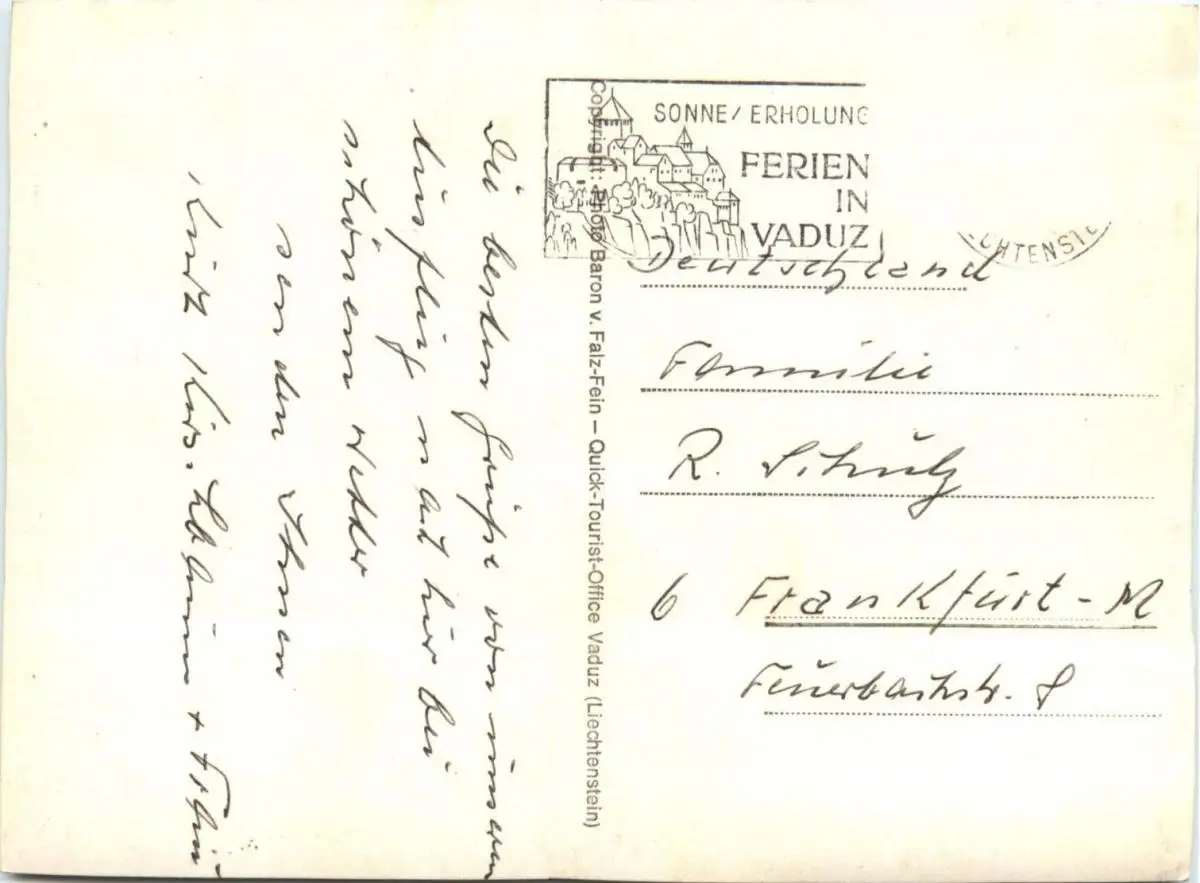 Die besten Grüße von unserem
Ausflug nach hier bei
schönem Wetter
senden Ihnen
Kurt Kirschbaum + Frau
Copyright: Photo Baron v. Falz-Fein – Quick-Tourist-Office Vaduz (Liechtenstein)
SONNE/ERHOLUNG
FERIEN
IN
VADUZ
CHTENSTE
Deutschland
Familie
R. Schulz
6 Frankfurt-M
Feuerbachstr. 8